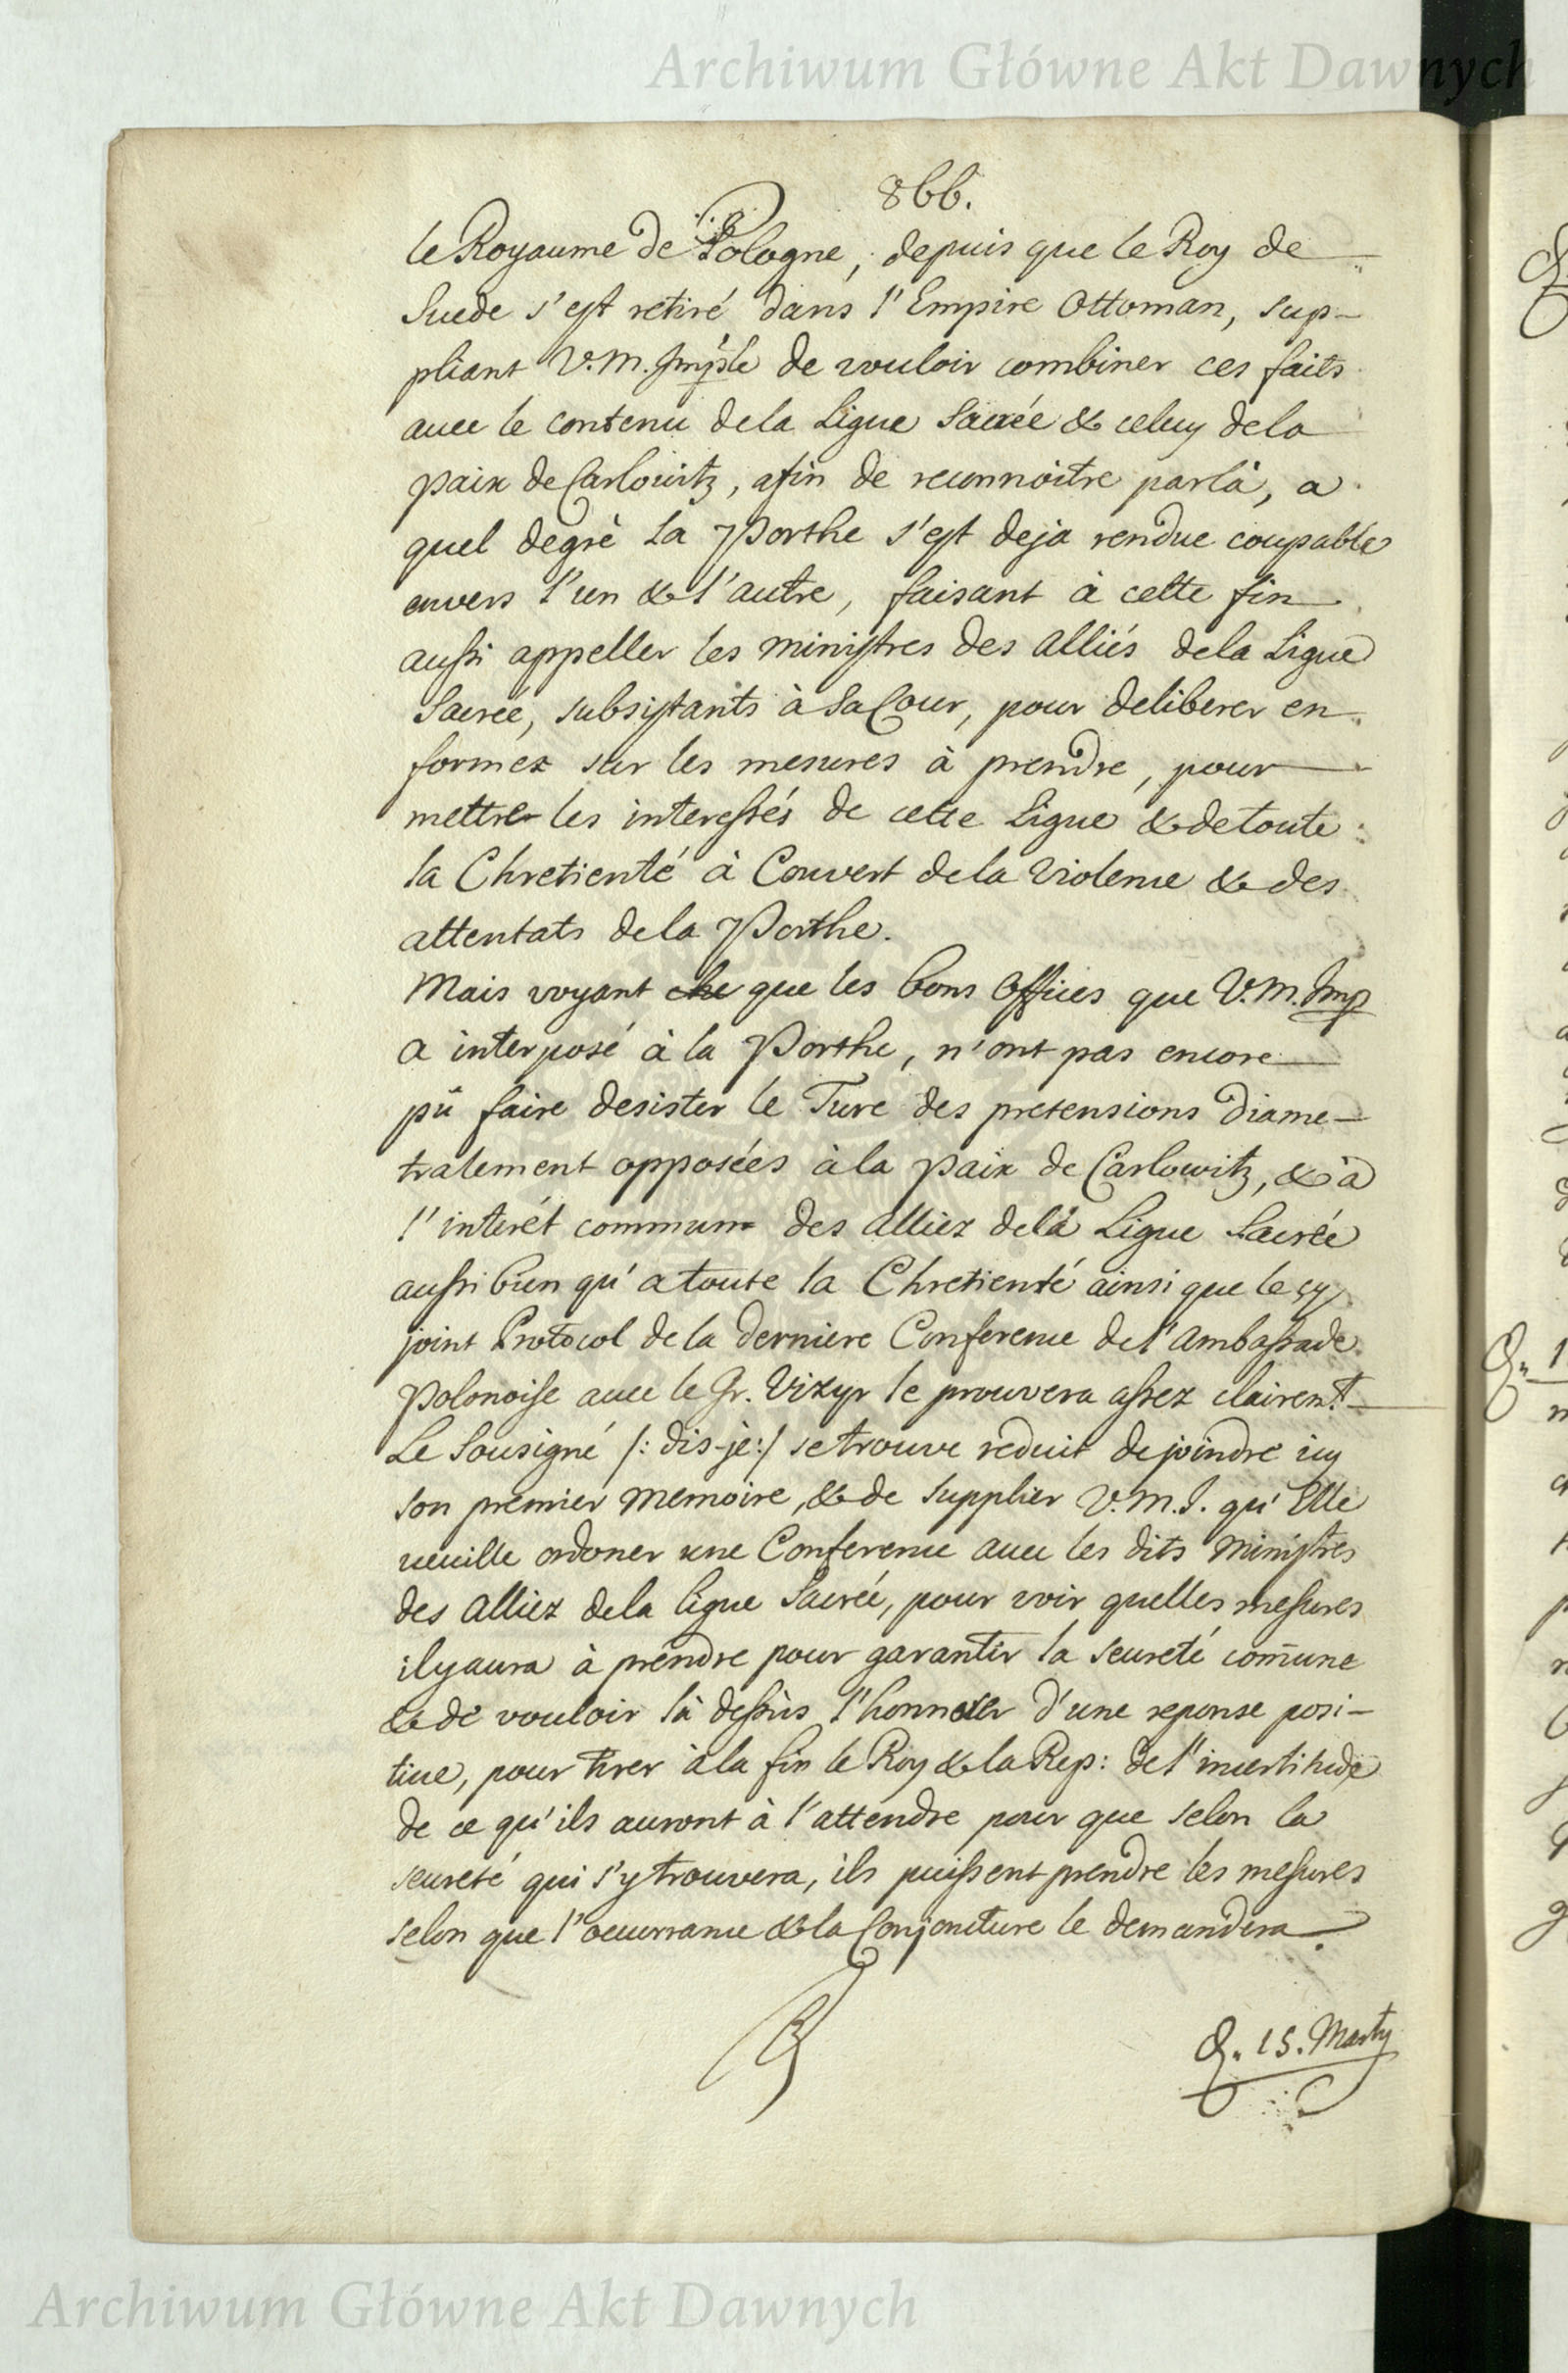 Archiwum Główne Akt Dawnych
866.
le Royaume de Pologne, depuis que le Roy de
Suede s'est retiré dans l'Empire Ottoman, sup-
pliant V. M. Impsle de vouloir combiner ces faits
avec le contenu de la Ligue Sacrée & celuy de la
paix de Carlowitz, afin de reconnoitre par là, a
quel degré la Porthe s'est deja rendue coupable
envers l'un & l'autre, faisant à cette fin
aussi appeller les ministres des alliés de la Ligue
Sacrée, subsistants à Sa Cour, pour deliberer en
formes sur les mesures à prendre, pour
mettre les interessés de cette Ligue & de toute
la Chretienté à Couvert de la violence & des
attentats de la Porthe.
Mais voyant che que les bons offices que V. M. Imp
a interposé à la Porthe, n'ont pas encore
pû faire desister le Turc des pretensions diame-
tralement opposées à la paix de Carlowitz, & à
l'interét commun des alliez de la Ligue Sacrée
aussi bien qu'a toute la Chretienté ainsi que le cy
joint Protocol de la derniere Conference de l'ambassade
Polonoise avec le Gr. Vizyr le prouvera assez clairent
Le Sousigné /: dis-je :/ se trouve reduit de joindre icy
son premier memoire, & de supplier V. M. I. qu'Elle
veuille ordoner une Conference avec les dits ministres
des alliez de la ligue Sacrée, pour voir quelles mesures
il y aura à prendre pour garantir la seureté com̄une
& de vouloir là dessus l'honnorer d'une reponse posi-
tive, pour tirer à la fin le Roy & la Rep: de l'incertitude
de ce qu'ils auront à l'attendre pour que selon la
seureté qui s'y trouvera, ils puissent prendre les mesures
selon que l'occurrance & la Conjoncture le demandera.
D. 15. Marty
Archiwum Główne Akt Dawnych